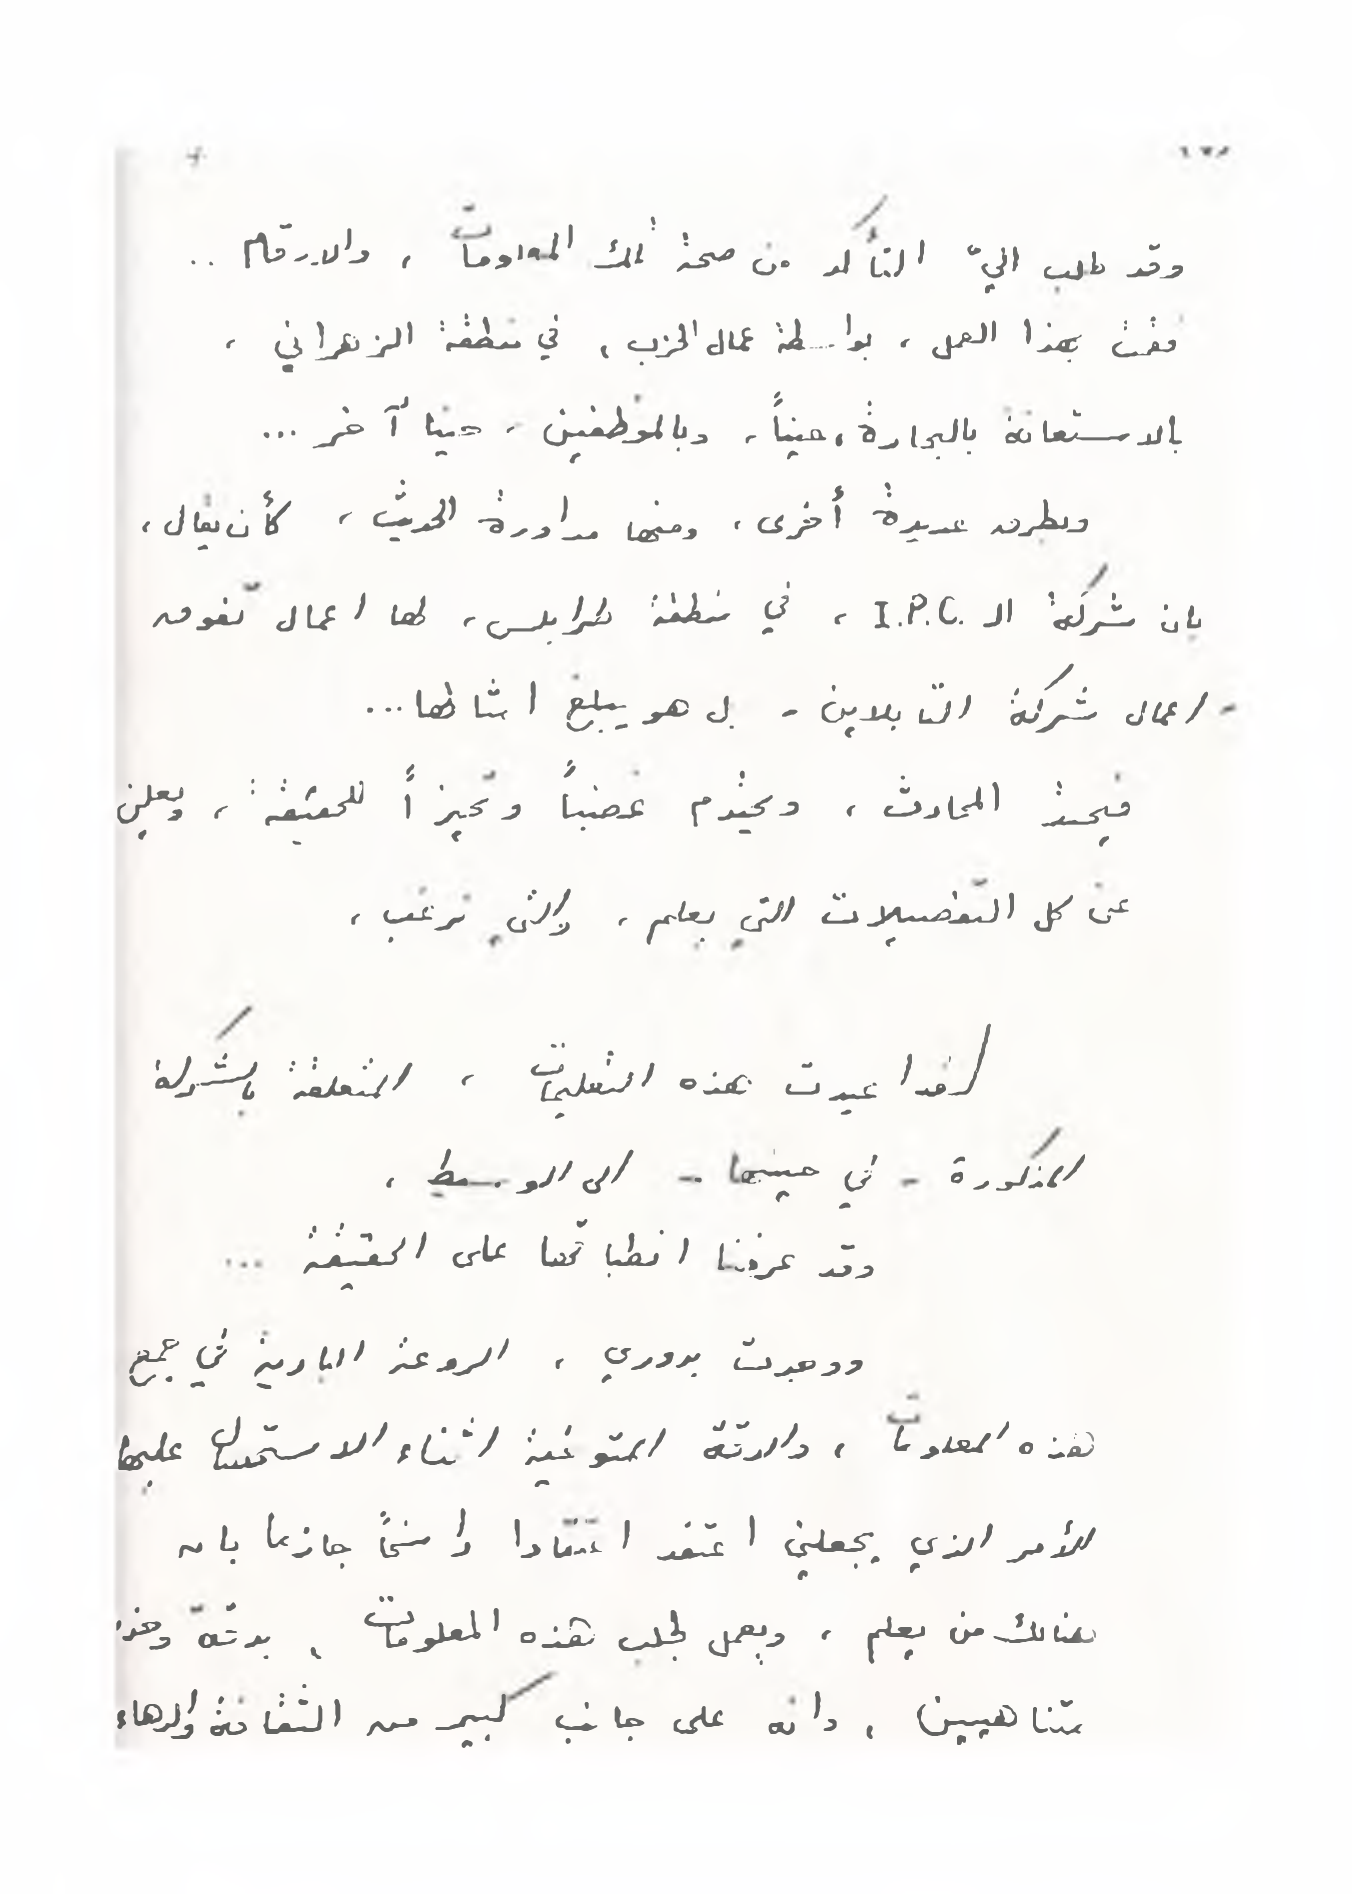 وقد طلب اليّ التأكد من صحة تلك المعلومات ، والارقام ..
فقمت بهذا العمل ، بواسطة عمال الحزب ، في منطقة الزهراني ،
بالاستعانة بالبحارة ، حيناً ، وبالموظفين ، حينا آخر ...
وبطرق عديدة أخرى ، ومنها مداورة الحديث ، كأن يقال ،
بان شركة الـ I.P.C. ، في منطقة طرابلس ، لها اعمال تفوق
- اعمال شركة التابلاين - بل هو يبلغ نشاطها ...
فيحتد المحادث ، ويحتدم غضباً وتحيزاً للحقيقة ، ويعلن
عن كل التفصيلات التي يعلم ، والتي نرغب ،
لقد اعيدت هذه التعليمات ، المتعلقة بالشركة
المذكورة - في حينها - الى الوسيط ،
وقد عرفنا انطباقها على الحقيقة ...
ووجدت بدوري ، الروعة البادية في جمع
هذه المعلومات ، والدقة المتوخية اثناء الاستحصال عليها
الأمر الذي يجعلني اعتقد اعتقادا راسخاً جازما بان
هنالك من يعلم ، ويعمل لجلب هذه المعلومات ، بدقة وحذر
متناهيين ، وانه على جانب كبير من الثقافة والدهاء